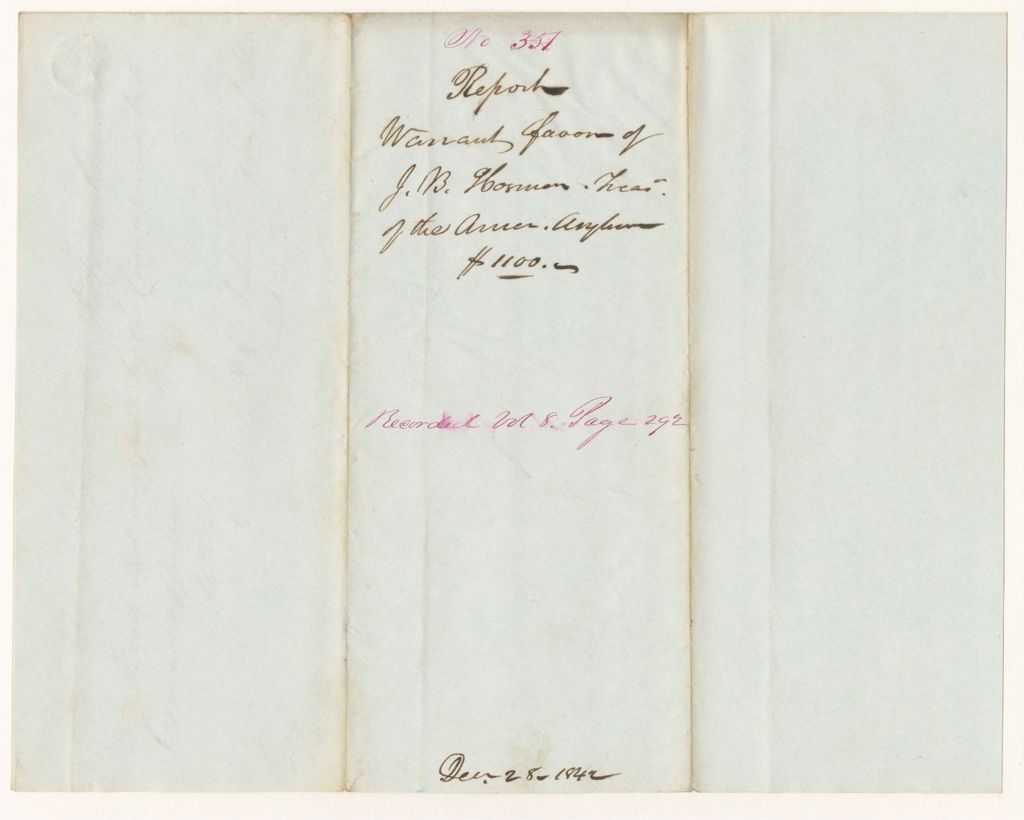 No 351
Report
Warrant favor of
J. B. Hosmer. Treas.
of the Amer. Asylum
$1100.
Recorded Vol 8. Page 292
Decr 28 1842